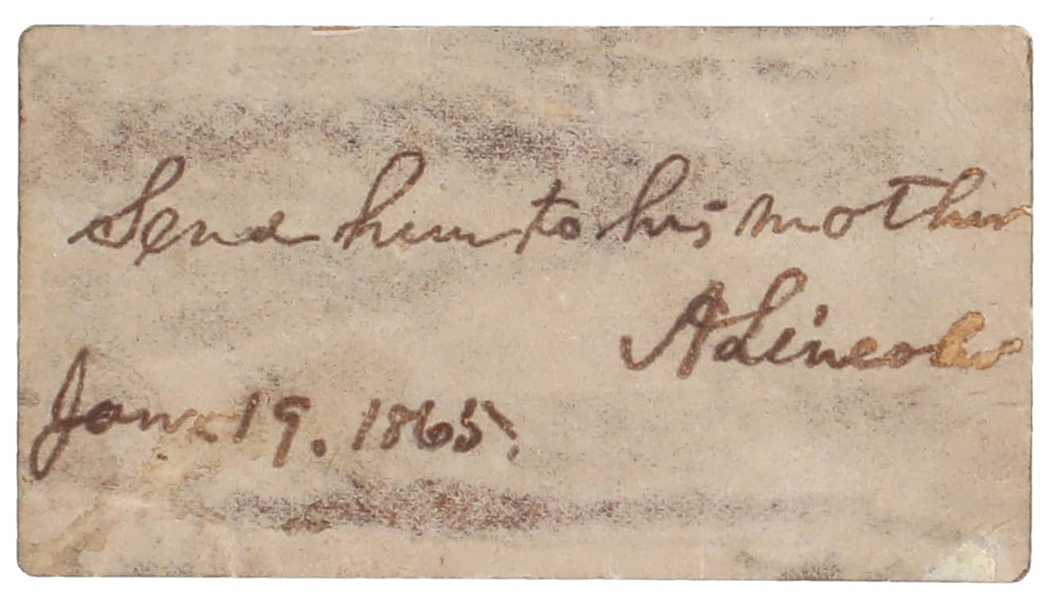 Send him to his mother
A. Lincoln
Jan. 19. 1865.